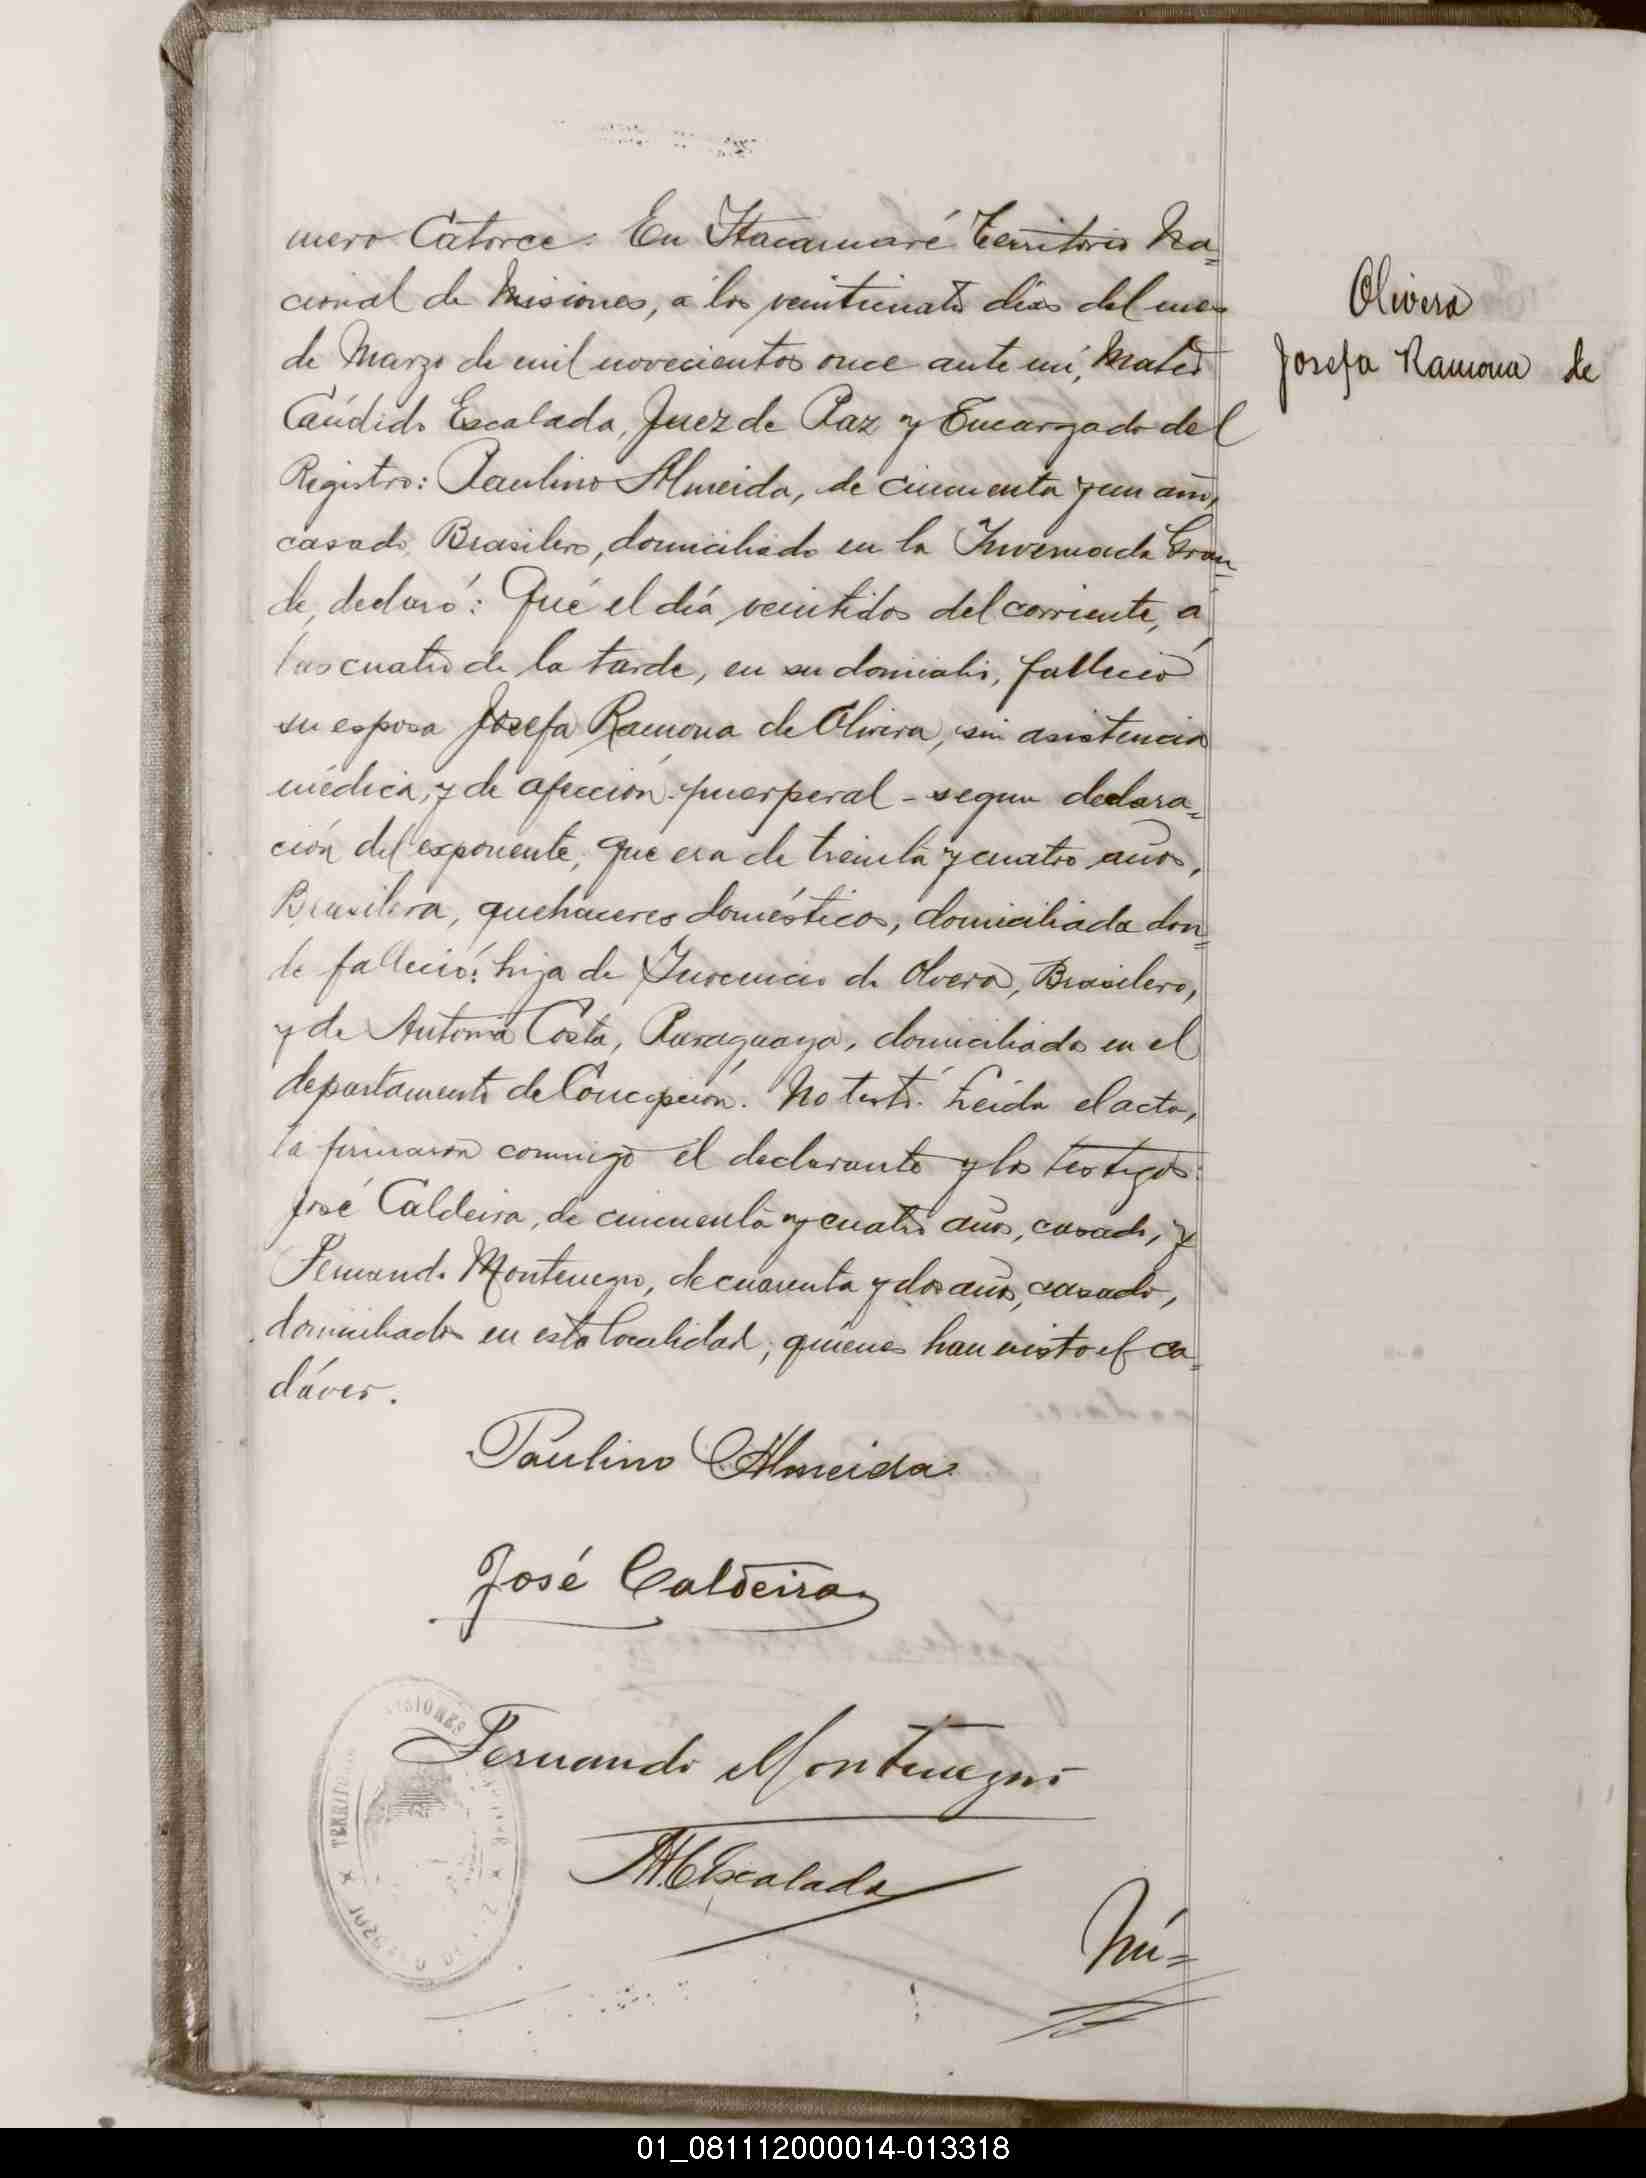 mero Catorce. En Itacaruaré Territorio Na=
cional de Misiones, a los veinticuatro días del mes
de Marzo de mil novecientos once ante mí, Mateo
Cándido Escalada, Juez de Paz y Encargado del
Registro: Paulino Almeida, de cincuenta y un año,
casado, Brasilero, domiciliado en la Invernada Gran=
de, declaró: Qué el día veintidos del corriente, a
las cuatro de la tarde, en su domicilio, falleció
su esposa Josefa Ramona de Olivera, sin asistencia
médica, y de afección puerperal - segun declara=
ción del exponente, que era de treinta y cuatro años,
Brasilera, quehaceres domésticos, domiciliada don=
de falleció: hija de Inocencio de Olvera, Brasilero,
y de Antonia Costa, Paraguaya, domiciliados en el
departamento de Concepción. No testó. Leida el acta,
la firmaron conmigo el declarante y los testigos:
José Caldeira, de cincuenta y cuatro años, casado, y
Fernando Montenegro, de cuarenta y dos años, casado,
domiciliados en esta localidad, quienes han visto el ca=
dáver.
Paulino Almeida
José Caldeira
Fernando Montenegro
M C Escalada
Nú=
Olivera
Josefa Ramona de
TERRITORIO MISIONES
01_081112000014-013318